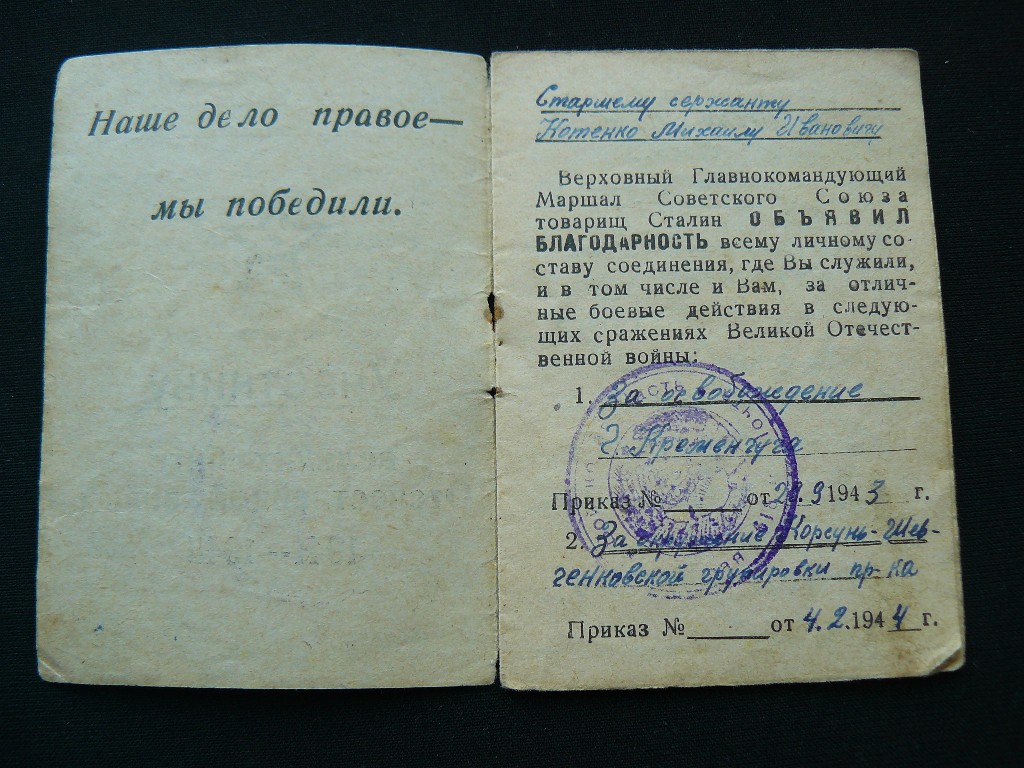 Наше дело правое—
мы победили.
Старшему сержанту
Котенко Михаилу Ивановичу
Верховный Главнокомандующий
Маршал Советского Союза
товарищ Сталин ОБЪЯВИЛ
БЛАГОДАРНОСТЬ всему личному со-
ставу соединения, где Вы служили,
и в том числе и Вам, за отлич-
ные боевые действия в следую-
щих сражениях Великой Отечест-
венной войны:
1. За освобождение
г. Кременчуга
Приказ № от 29.9 1943 г.
2. За окружение Корсунь-Шев-
ченковской группировки пр-ка
Приказ № от 4.2.1944 г.